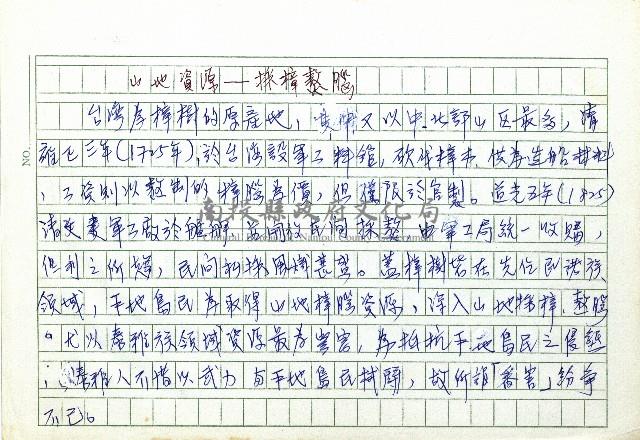 山地資源—採樟熬腦
台灣為樟樹的原產地，又以中、北部山区最多，清
雍正三年(1725年)，於台湾設軍工料館，砍伐樟木，供為造船材料
，工資則以熬制的樟腦為價，但僅限於官製。道光五年(1825)
清改委軍工廠於艋舺，並開放民间採熬，由軍工局統一收購，
但利之所趨，民间私採風熾甚盛。蓋樟樹皆在先住民諸族
領域，平地島民為取得山地樟腦資源，深入山地採樟、熬腦
。尤以泰雅族領域資源最為豐富，為抵抗平地島民之侵墾
，泰雅人不惜以武力与平地島民拭鬪，故所謂「番害」紛爭
不已。
NO.
南投縣政府文化局